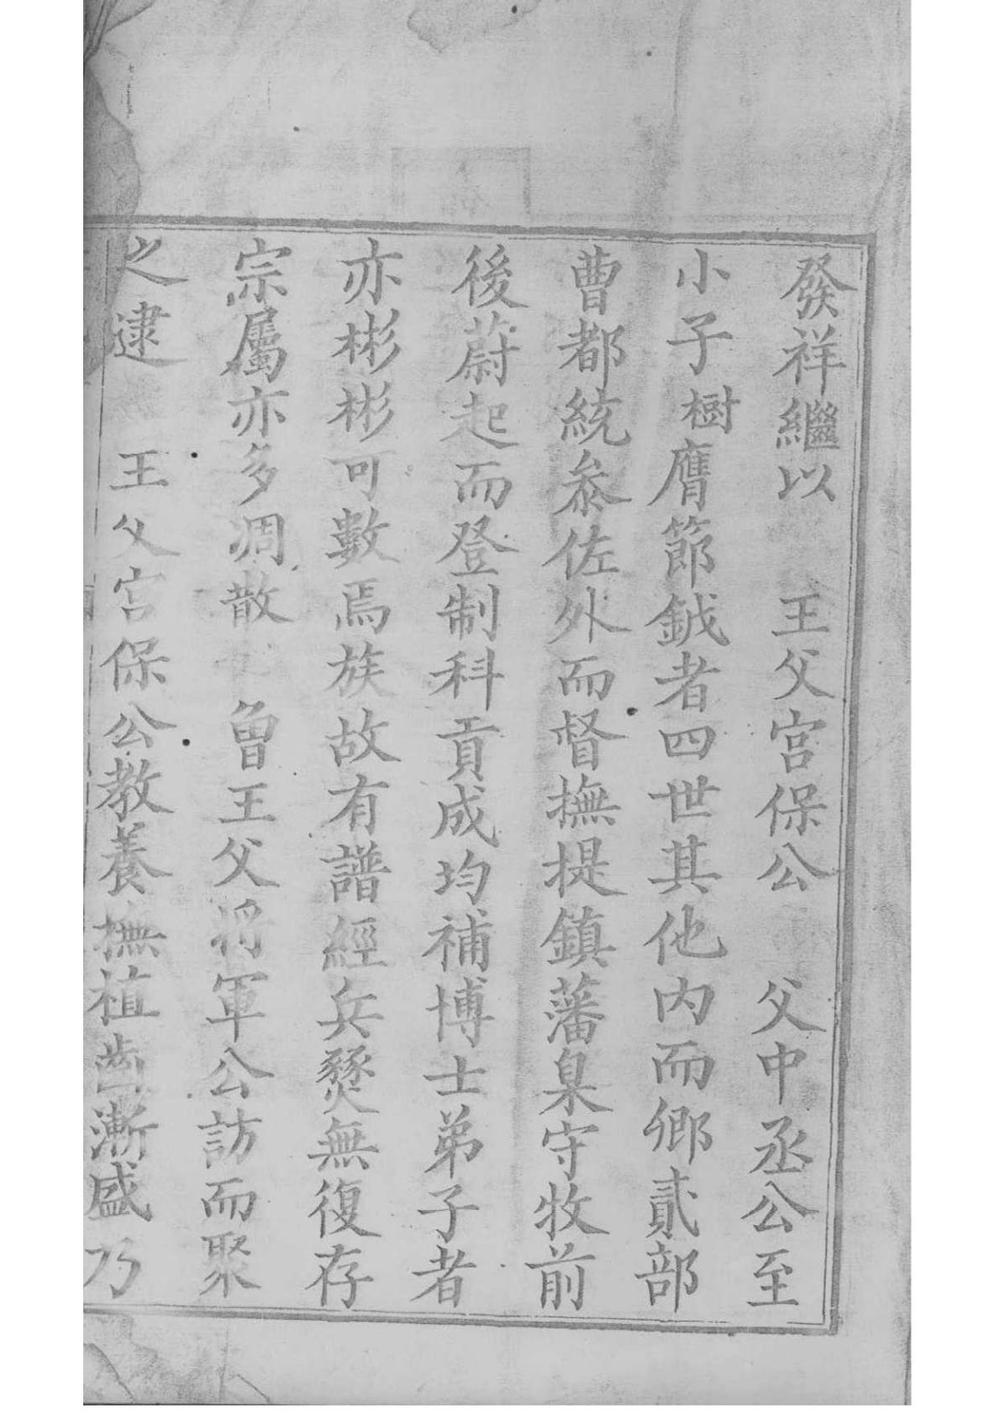 發祥繼以　王父宮保公　父中丞公至
小子樹膺節鉞者四世其他内而卿貳部
曹都統叅佐外而督撫提鎮藩臬守牧前
後蔚起而登制科貢成均補博士弟子者
亦彬彬可數焉族故有譜經兵燹無復存
宗屬亦多凋散　曾王父將軍公訪而聚
之逮　王父宮保公教養撫植齒漸盛乃